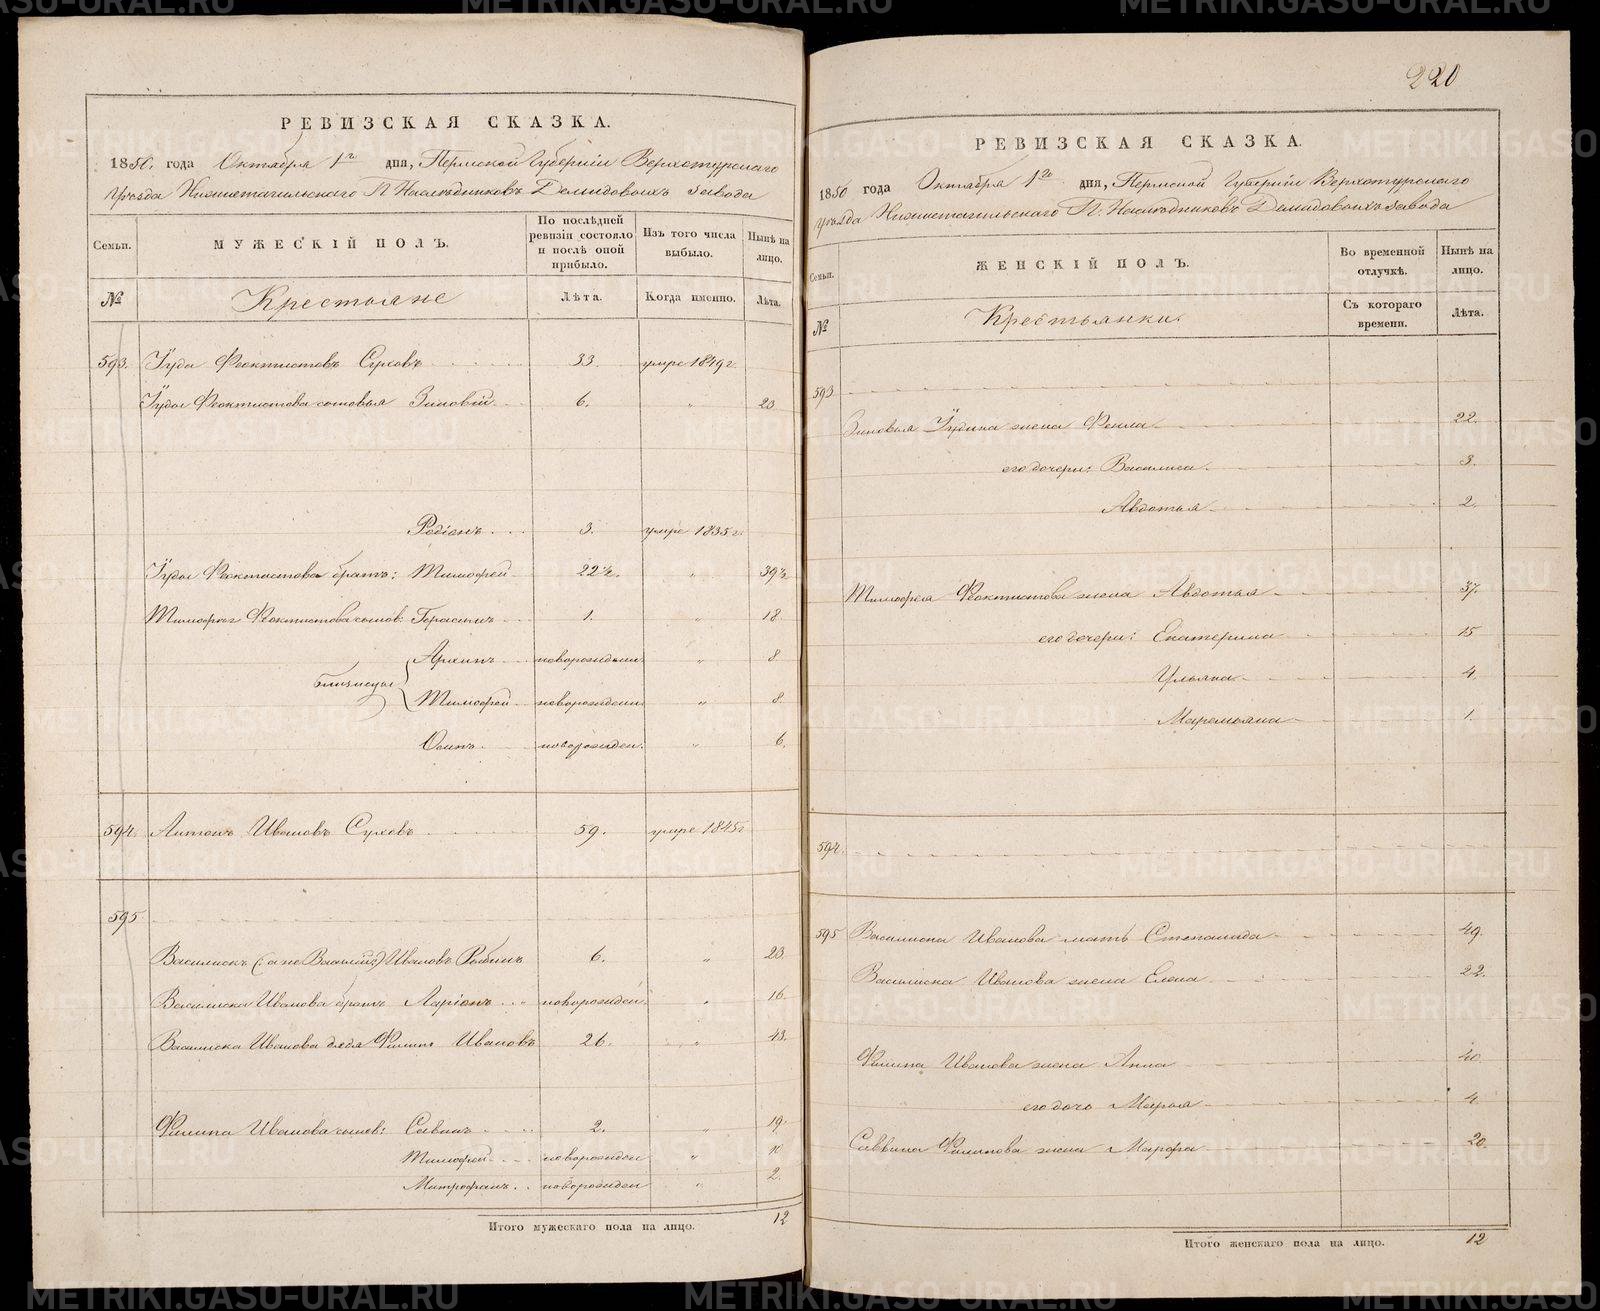 РЕВИЗСКАЯ СКАЗКА.
1850. года Октября 1го дня, Пермской Губерніи Верхотурскаго
Уѣзда Нижнетагильскаго Г. Наслѣдниковъ Демидовыхъ завода
Семьи. МУЖЕСКІЙ ПОЛЪ. По послѣдней ревизіи состояло и послѣ оной прибыло. Изъ того числа выбыло. Нынѣ на лицо.
№ Крестьяне Лѣта. Когда именно. Лѣта.
593. Іуда Феоктистовъ Суховъ 33. умре 1849 г.
Іуды Феоктистова сыновья Зиновій 6. " 23
Родіонъ 3. умре 1835 г.
Іуды Феоктистова братъ: Тимофей 22½. " 39½
Тимофея Феоктистова сынов: Герасимъ 1. " 18
близнецы Архипъ новорожден. " 8
Тимофей новорожден. " 8.
Осипъ новорожден. " 6.
594. Антонъ Ивановъ Суховъ 59. умре 1845 г
595.
Василискъ (: а не Василій:) Ивановъ 6. " 23.
Василиска Иванова братъ Ларіонъ новорожден. " 16.
Василиска Иванова дядя Филипъ Ивановъ 26. " 43.
Филипа Иванова сынов: Савинъ 2. " 19.
Тимофей новорожден "
Митрофанъ новорожден " 2.
Итого мужескаго пола на лицо. 12
220
РЕВИЗСКАЯ СКАЗКА.
1850 года Октября 1го дня, Пермской Губерніи Верхотурскаго
Уѣзда Нижнетагильскаго Г. Наслѣдниковъ Демидовыхъ завода
Семьи. ЖЕНСКІЙ ПОЛЪ. Во временной отлучкѣ. Нынѣ на лицо.
№ Крестьянки. Съ котораго времени. Лѣта.
593
Зиновья Іудина жена Фекла 22.
его дочери: Василиса 3.
Авдотья 2.
Тимофея Феоктистова жена Авдотья 37.
его дочери: Екатерина 15
Ульяна 4.
Маремьяна 1.
594.
595 Василиска Иванова мать Степанида 49.
Василиска Иванова жена Елена 22.
Филипа Иванова жена Анна 40.
его дочь Марья 4.
Саввина Филипова жена Марфа 20.
Итого женскаго пола на лицо. 12
METRIKI.GASO-URAL.RU